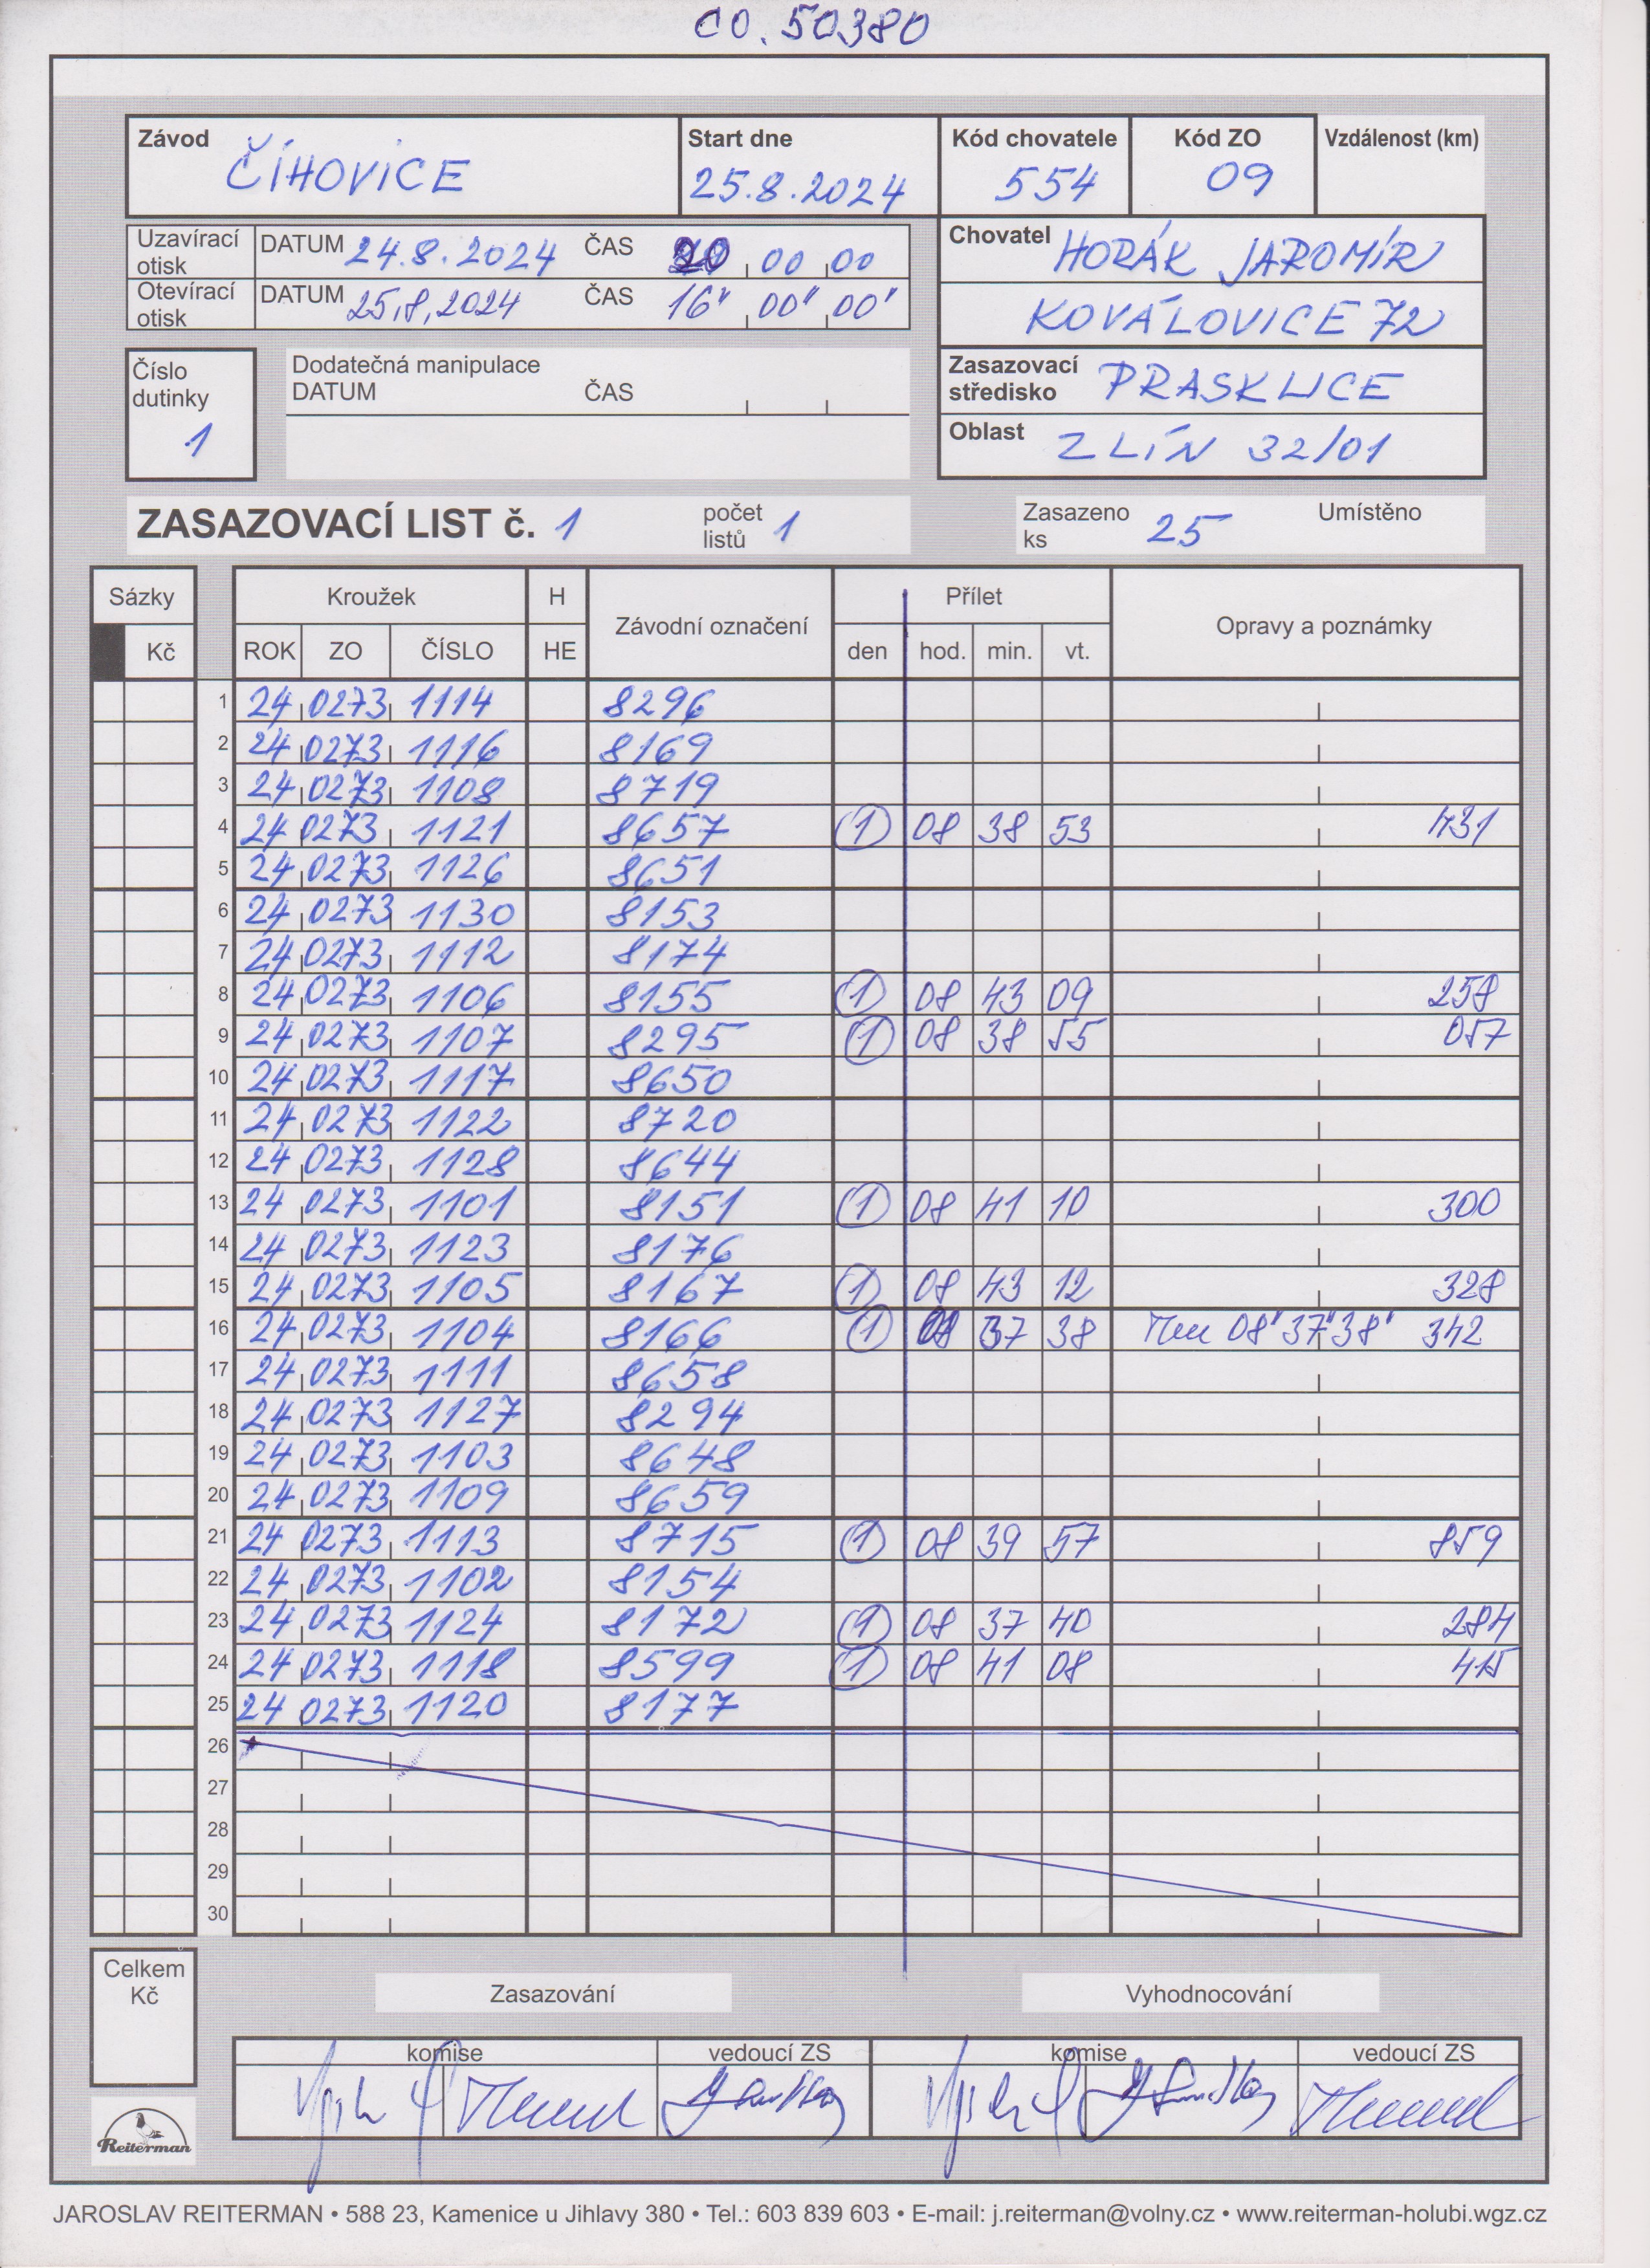 CO. 50380
Závod Start dne Kód chovatele Kód ZO Vzdálenost (km)
ČÍHOVICE 25.8.2024 554 09
Uzavírací otisk DATUM 24.8.2024 ČAS 20 00 00
Otevírací otisk DATUM 25,8,2024 ČAS 16" 00" 00"
Chovatel HORÁK JAROMÍR
KOVÁLOVICE 72
Číslo dutinky 1
Dodatečná manipulace
DATUM ČAS
Zasazovací středisko PRASKLICE
Oblast ZLÍN 32/01
ZASAZOVACÍ LIST č. 1 počet listů 1 Zasazeno ks 25 Umístěno
Sázky Kroužek H Závodní označení Přílet Opravy a poznámky
Kč ROK ZO ČÍSLO HE den hod. min. vt.
1 24 0273 1114 8296
2 24 0273 1116 8169
3 24 0273 1108 8719
4 24 0273 1121 8657 1 08 38 53 431
5 24 0273 1126 8651
6 24 0273 1130 8153
7 24 0273 1112 8174
8 24 0273 1106 8155 1 08 43 09 258
9 24 0273 1107 8295 1 08 38 55 057
10 24 0273 1117 8650
11 24 0273 1122 8720
12 24 0273 1128 8644
13 24 0273 1101 8151 1 08 41 10 300
14 24 0273 1123 8176
15 24 0273 1105 8167 1 08 43 12 328
16 24 0273 1104 8166 1 08 37 38 08" 37" 38" 342
17 24 0273 1111 8658
18 24 0273 1127 8294
19 24 0273 1103 8648
20 24 0273 1109 8659
21 24 0273 1113 8715 1 08 39 57 859
22 24 0273 1102 8154
23 24 0273 1124 8172 1 08 37 40 284
24 24 0273 1118 8599 1 08 41 08 415
25 24 0273 1120 8177
26
27
28
29
30
Celkem Kč
Zasazování Vyhodnocování
komise vedoucí ZS komise vedoucí ZS
Reiterman
JAROSLAV REITERMAN • 588 23, Kamenice u Jihlavy 380 • Tel.: 603 839 603 • E-mail: j.reiterman@volny.cz • www.reiterman-holubi.wgz.cz